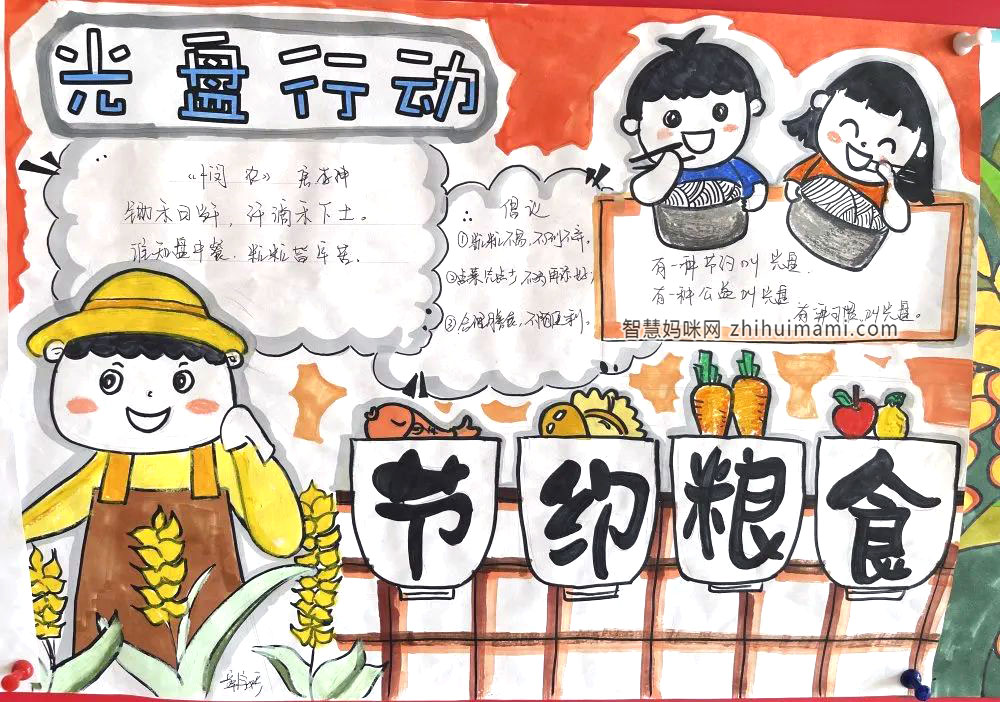 光盘行动
《悯农》 李绅
锄禾日当午，汗滴禾下土。
谁知盘中餐，粒粒皆辛苦。
倡议
①粒粒不易，不剩不弃。
③合理膳食，
有一种节约叫光盘.
有一种公益叫光盘
有种习惯叫光盘。
智慧妈咪网 zhihuimami.com
节约粮食